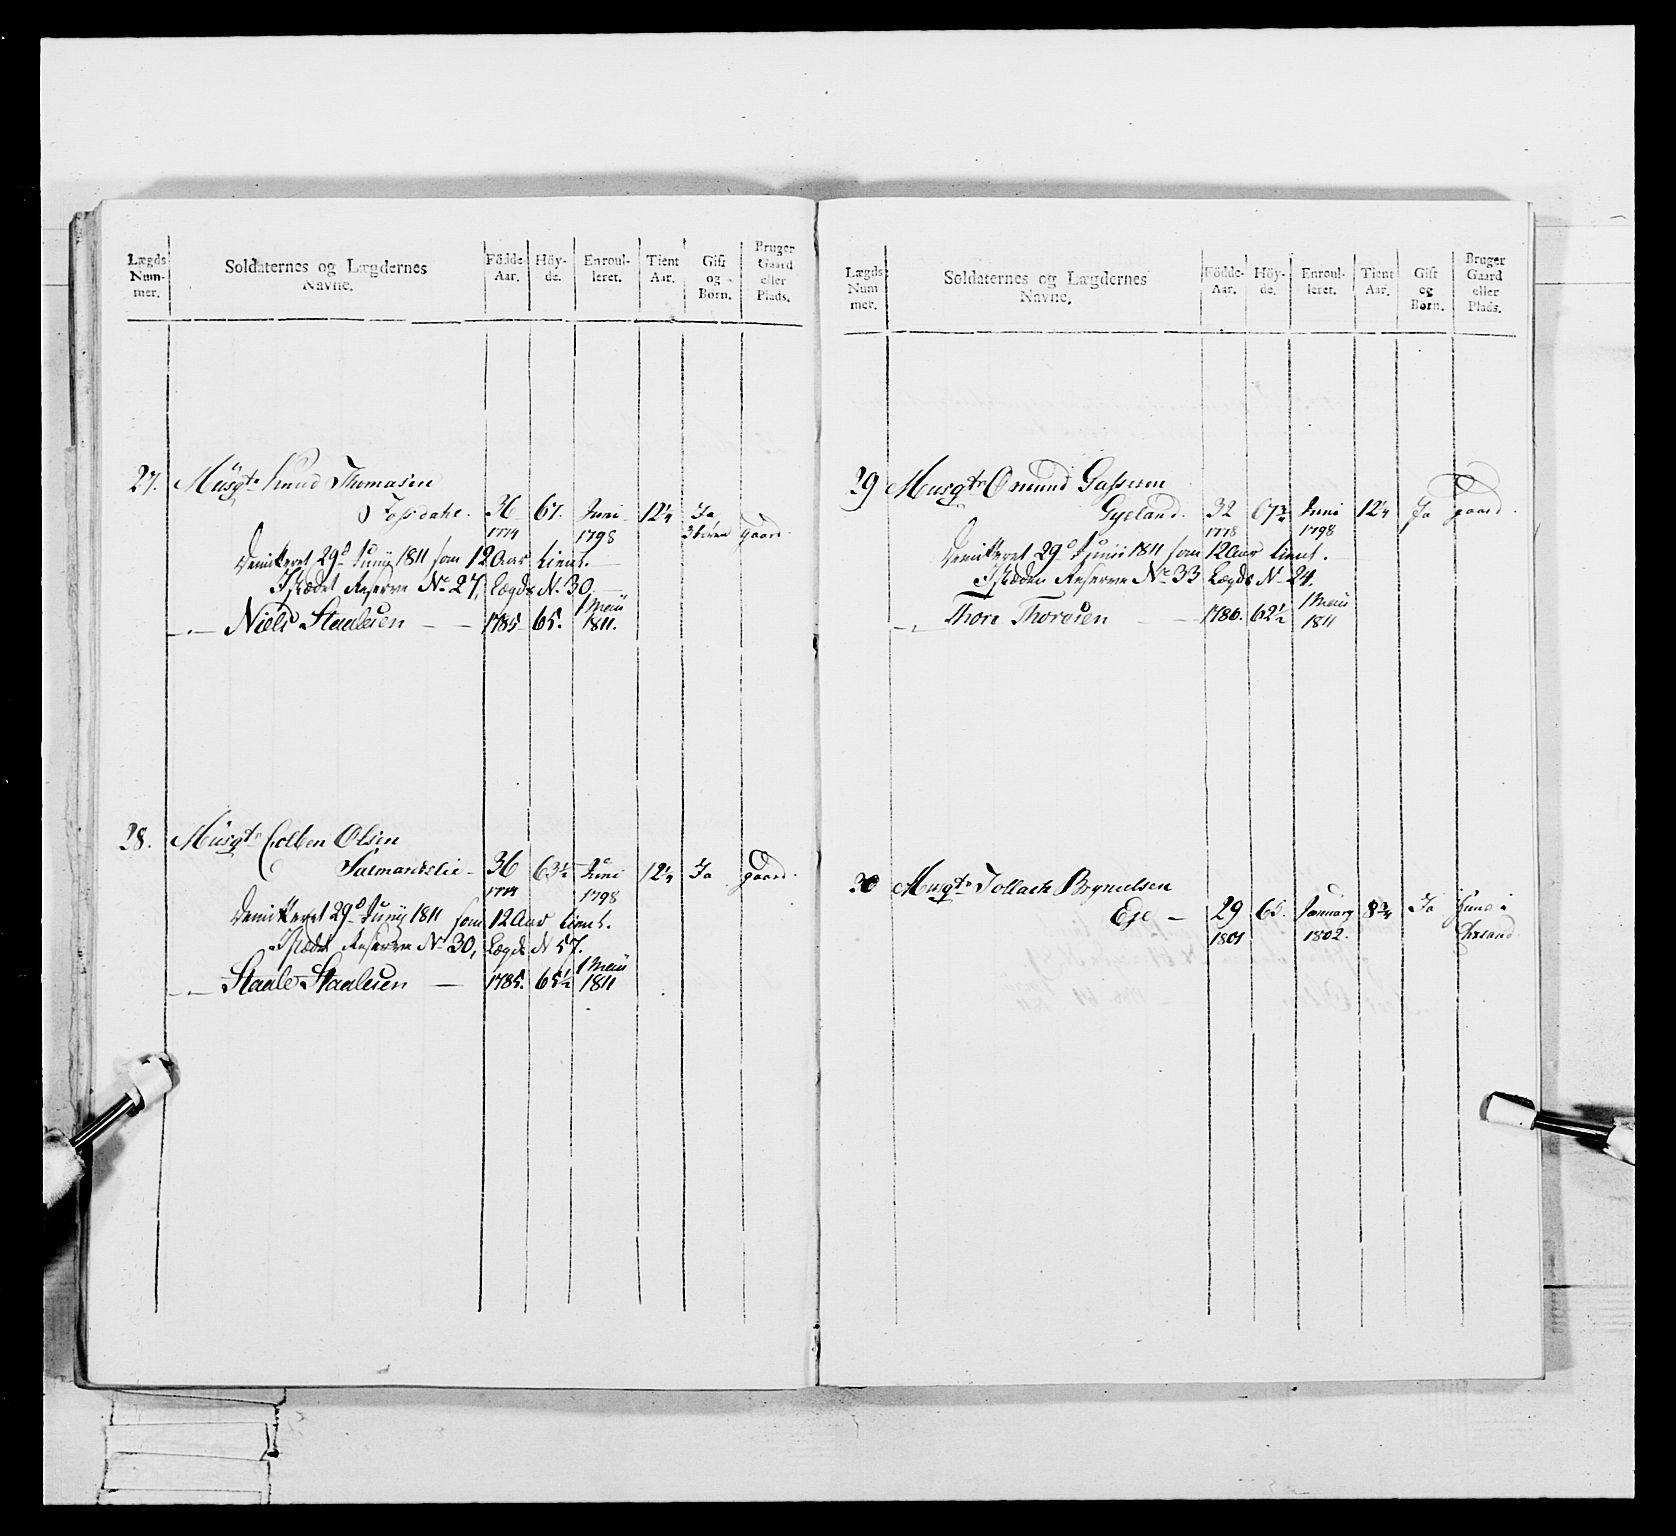 Lægds Num- mer.
Soldaternes og Lægdernes Navne.
Födde- Aar.
Höy- de.
Enroul- leret.
Tient Aar.
Gift og Børn.
Bruger Gaard eller Plads.
27. Musqt. Knud Thomasen
Fossdahl. 36 67. Juni 12¼ Ja
1774 1798 3 børn gaard.
Demitteret 29d Juny 1811 som 12 Aar tient.
Istædet Reserve No 27, Lægds N. 30.
Niels Staalesen 1785. 65. 1 Maii 1811.
28. Musqt. Colben Olsen
Salmandslie 36 63½ Juni 12¼ Ja gaard.
1774 1798
Demitteret 29d Juny 1811 som 12 Aar tient.
Istædet Reserve No 30, Lægds N 57.
Staale Staalesen 1785. 65½ 1 Maii 1811
Lægds Num- mer.
Soldaternes og Lægdernes Navne.
Födde- Aar.
Höy- de.
Enroul- leret.
Tient Aar.
Gift og Børn.
Bruger Gaard eller Plads.
29 Musqt. Omund
Gyeland. 32 Juni 12¼ Ja gaard.
1778 1798
Demitteret 29d Junii 1811 som 12 Aar tient.
Istæden Reserve No 33 Lægds N 24.
Thore Thorsen 1786. 62½ 1 Maii 1811
30 Musqt. Tollach Brynelsen
Eje 29 65. January 8¾ Ja huus i
1801 1802. Chrsand.